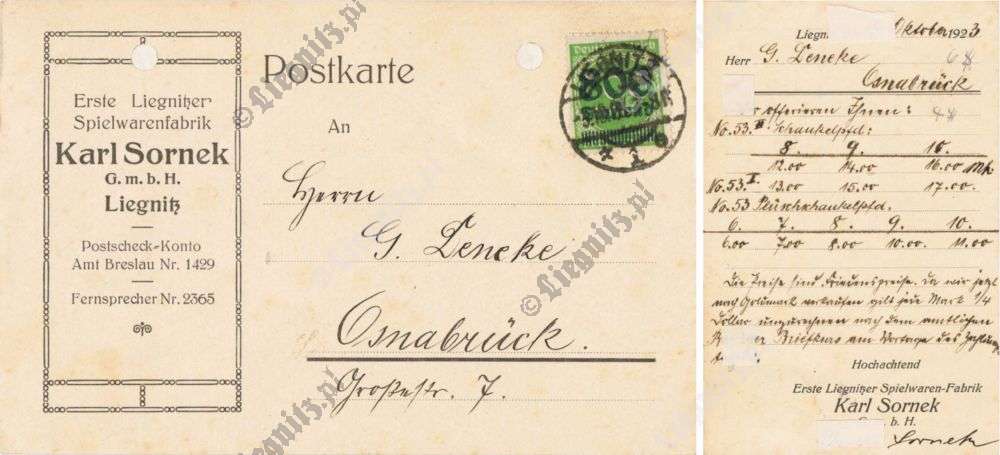 Erste Liegnitzer
Spielwarenfabrik
Karl Sornek
G. m. b. H.
Liegnitz
Postscheck-Konto
Amt Breslau Nr. 1429
Fernsprecher Nr. 2365
Postkarte
An
Herrn
G. Leneke
Osnabrück.
Großestr. 7.
LIEGNITZ
© Liegnitz.pl
© Liegnitz.pl
© Liegnitz.pl
Liegn Oktober 1923
Herr G. Leneke
Osnabrück
offerieren Ihnen:
No. 53.II Schaukelpfd:
8. 9. 10.
12.00 14.00 16.00 Mk
No. 53.I 13.00 15.00 17.00.
No. 53 Plüschschaukelpfd.
6. 7. 8. 9. 10.
6.00 7.00 8.00 10.00. 11.00
Die Preise sind Friedenspreise. Da wir jetzt
nach Goldmark verkaufen gilt jede Mark 1/4
Dollar umzurechnen nach dem amtlichen
Briefkurs am Vortage des Zahlung
Hochachtend
Erste Liegnitzer Spielwaren-Fabrik
Karl Sornek
b. H.
Sornek